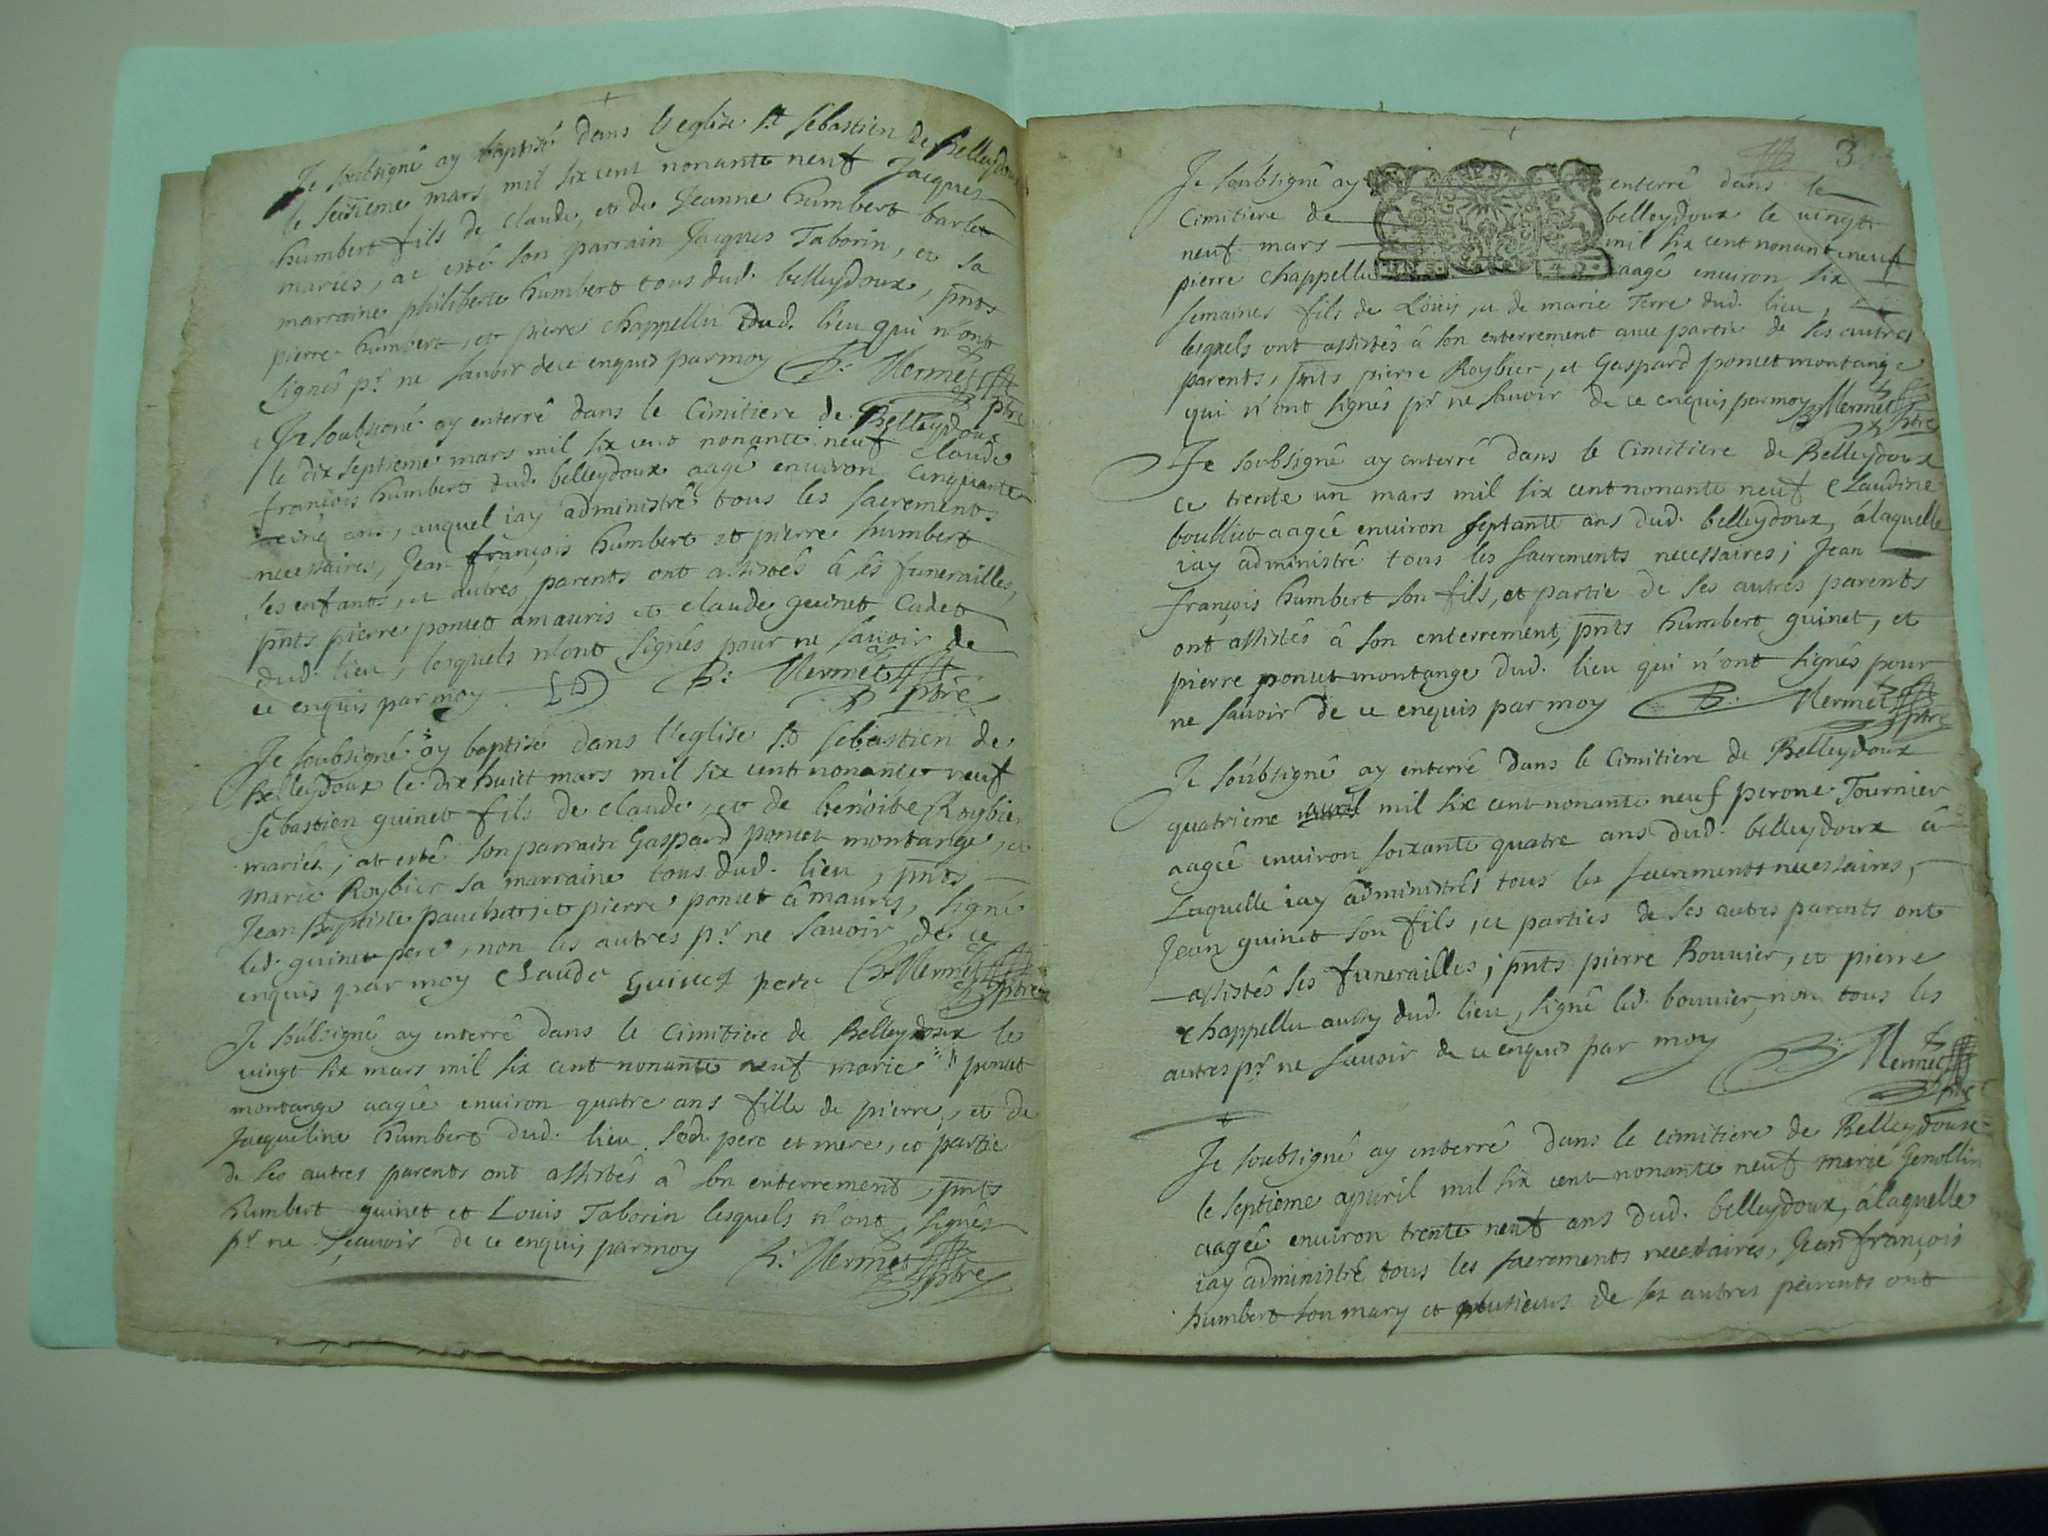 Je soubsigné ay baptisé dans l'eglise st sebastien de Belleydoux
le seisieme mars mil six cent nonante neuf Jacques
humbert fils de claude, et de Jeanne humbert barlet
mariés, at esté son parrain Jacques Taborin, et sa
marraine philiberte humbert tous dud. belleydoux, pnts
pierre humbert, et pierre chappellu dud. lieu qui n'ont
signés pr ne savoir de ce enquis par moy B: Mermet
ptre
Je soubsigné ay enterré dans le Cimitiere de Belleydoux
le dix septieme mars mil six cent nonante neuf claude
françois humbert dud. belleydoux aagé environ cinquante
cinq ans, auquel iay administré tous les sacrements
necessaires, Jean françois humbert et pierre humbert
ses enfants, et autres parents ont assistés â ses funerailles,
pnts pierre poncet amauris et claude guinet Cadet
dud. lieu, lesquels n'ont signés pour ne savoir de
ce enquis par moy B: Mermet
ptre
Je soubsigné ay baptisé dans l'eglise st sebastien de
Belleydoux le dix huict mars mil six cent nonante neuf
sebastien guinet fils de claude, et de benoite Roybier
mariés, at esté son parrain Gaspard poncet montange, et
marie Roybier sa marraine tous dud. lieu, pnts
Jean baptiste pauchet, et pierre poncet âmauris, signé
led. guinet pere, non les autres pr ne savoir de ce
enquis par moy claude Guinet pere B: Mermet
ptre
Je subsigné ay enterré dans le cimitiere de Belleydoux le
vingt six mars mil six cent nonante neuf marie poncet
montange aagée environ quatre ans fille de pierre, et de
Jacqueline humbert dud. lieu sed. pere et mere, et partie
de ses autres parents ont assistés â son enterrement, pnts
humbert guinet et Louis Taborin lesquels n'ont signés
pr ne sçavoir de ce enquis par moy B: Mermet
ptre
3
Je soubsigné ay enterré dans le
Cimitiere de belleydoux le vingt
neuf mars mil six cent nonant neuf
pierre chappellu aagé environ six
semaines fils de Loüis, et de marie Terre dud. lieu,
lesquels ont assistés â son enterrement avec partie de ses autres
parents, pnts pierre Roybier, et Gaspard poncet montange
qui n'ont signés pr ne savoir de ce enquis par moy B: Mermet
ptre
Je soubsigné ay enterré dans le Cimitiere de Belleydoux
ce trente un mars mil six cent nonante neuf claudine
boulliet aagée environ septante ans dud. belleydoux, álaquelle
iay administré tous les sacrements necessaires; Jean
françois humbert son fils, et partie de ses autres parents
ont assistés â son enterrement, pnts humbert guinet, et
pierre poncet montange dud. lieu qui n'ont signés pour
ne savoir de ce enquis par moy B: Mermet
ptre
Je soubsigné ay enterré dans le Cimitiere de Belleydoux
quatrieme avril mil six cent nonante neuf perone Tournier
aagée environ soixante quatre ans dud. belleydoux â
Laquelle iay administrés tous les sacrements necessaires,
Jean guinet son fils, et parties de ses autres parents ont
assistés ses funerailles; pnts pierre Bouvier, et pierre
chappellu aussy dud. lieu, signé led. bouvier, non tous les
autres pr ne savoir de ce enquis par moy B: Mermet
ptre
Je soubsigné ay enterré dans le cimitiere de Belleydoux
le septieme apvril mil six cent nonante neuf marie Jenollin
aagée environ trente neuf ans dud. belleydoux, álaquelle
iay administré tous les sacrements necessaires, Jean françois
humbert son mary et plusieurs de ses autres parents ont